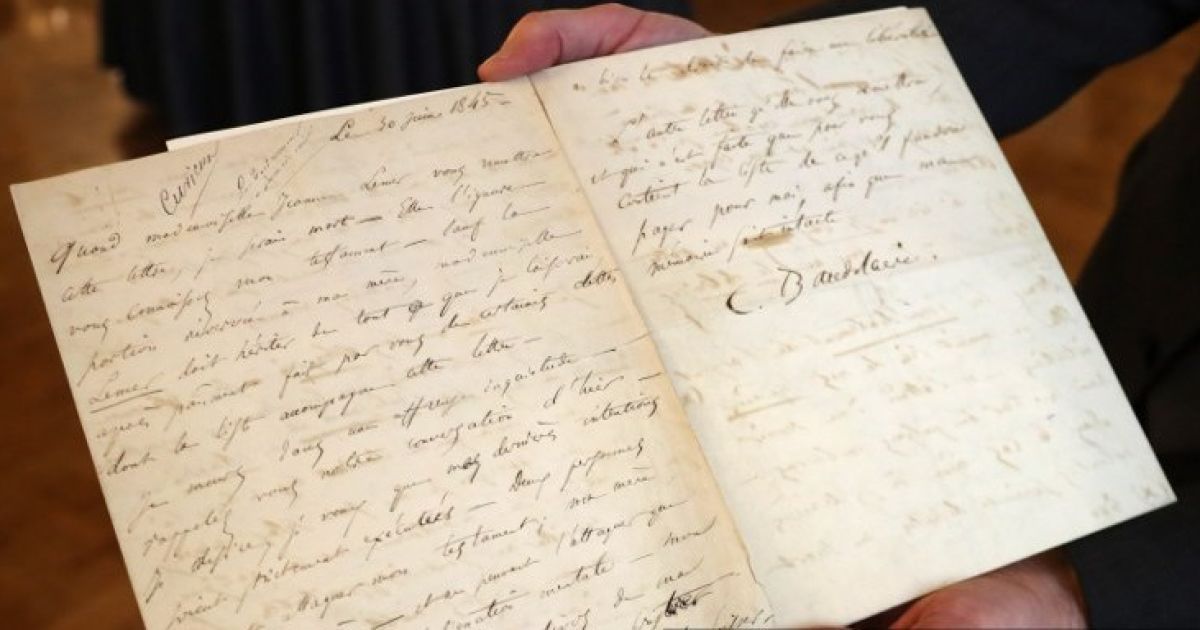 Le 30 juin 1845 —
Quand mademoiselle Jeanne Lemer vous remettra
cette lettre, je serai mort — Elle l'ignore
vous connaissez mon testament — Sauf la
portion réservée à ma mère, mademoiselle
Lemer doit hériter de tout ce que je laisserai
après paiment fait par vous de certaines dettes
dont la liste accompagne cette lettre —
je meurs dans une affreuse inquiétude —
rappelez vous notre conversation d'hier —
je désire, je veux que mes dernières intentions
soient strictement exécutées — Deux personnes
attaquer mon testament; ma mère
et ne peuvent l'attaquer que
aliénation mentale — mon
de ma
le faire en
L'autre lettre qu'elle vous remettra
et qui n'est faite que pour vous
contient la liste de ce qu'il faudra
payer pour moi, afin que ma
mémoire soit intacte
C. Baudelaire.